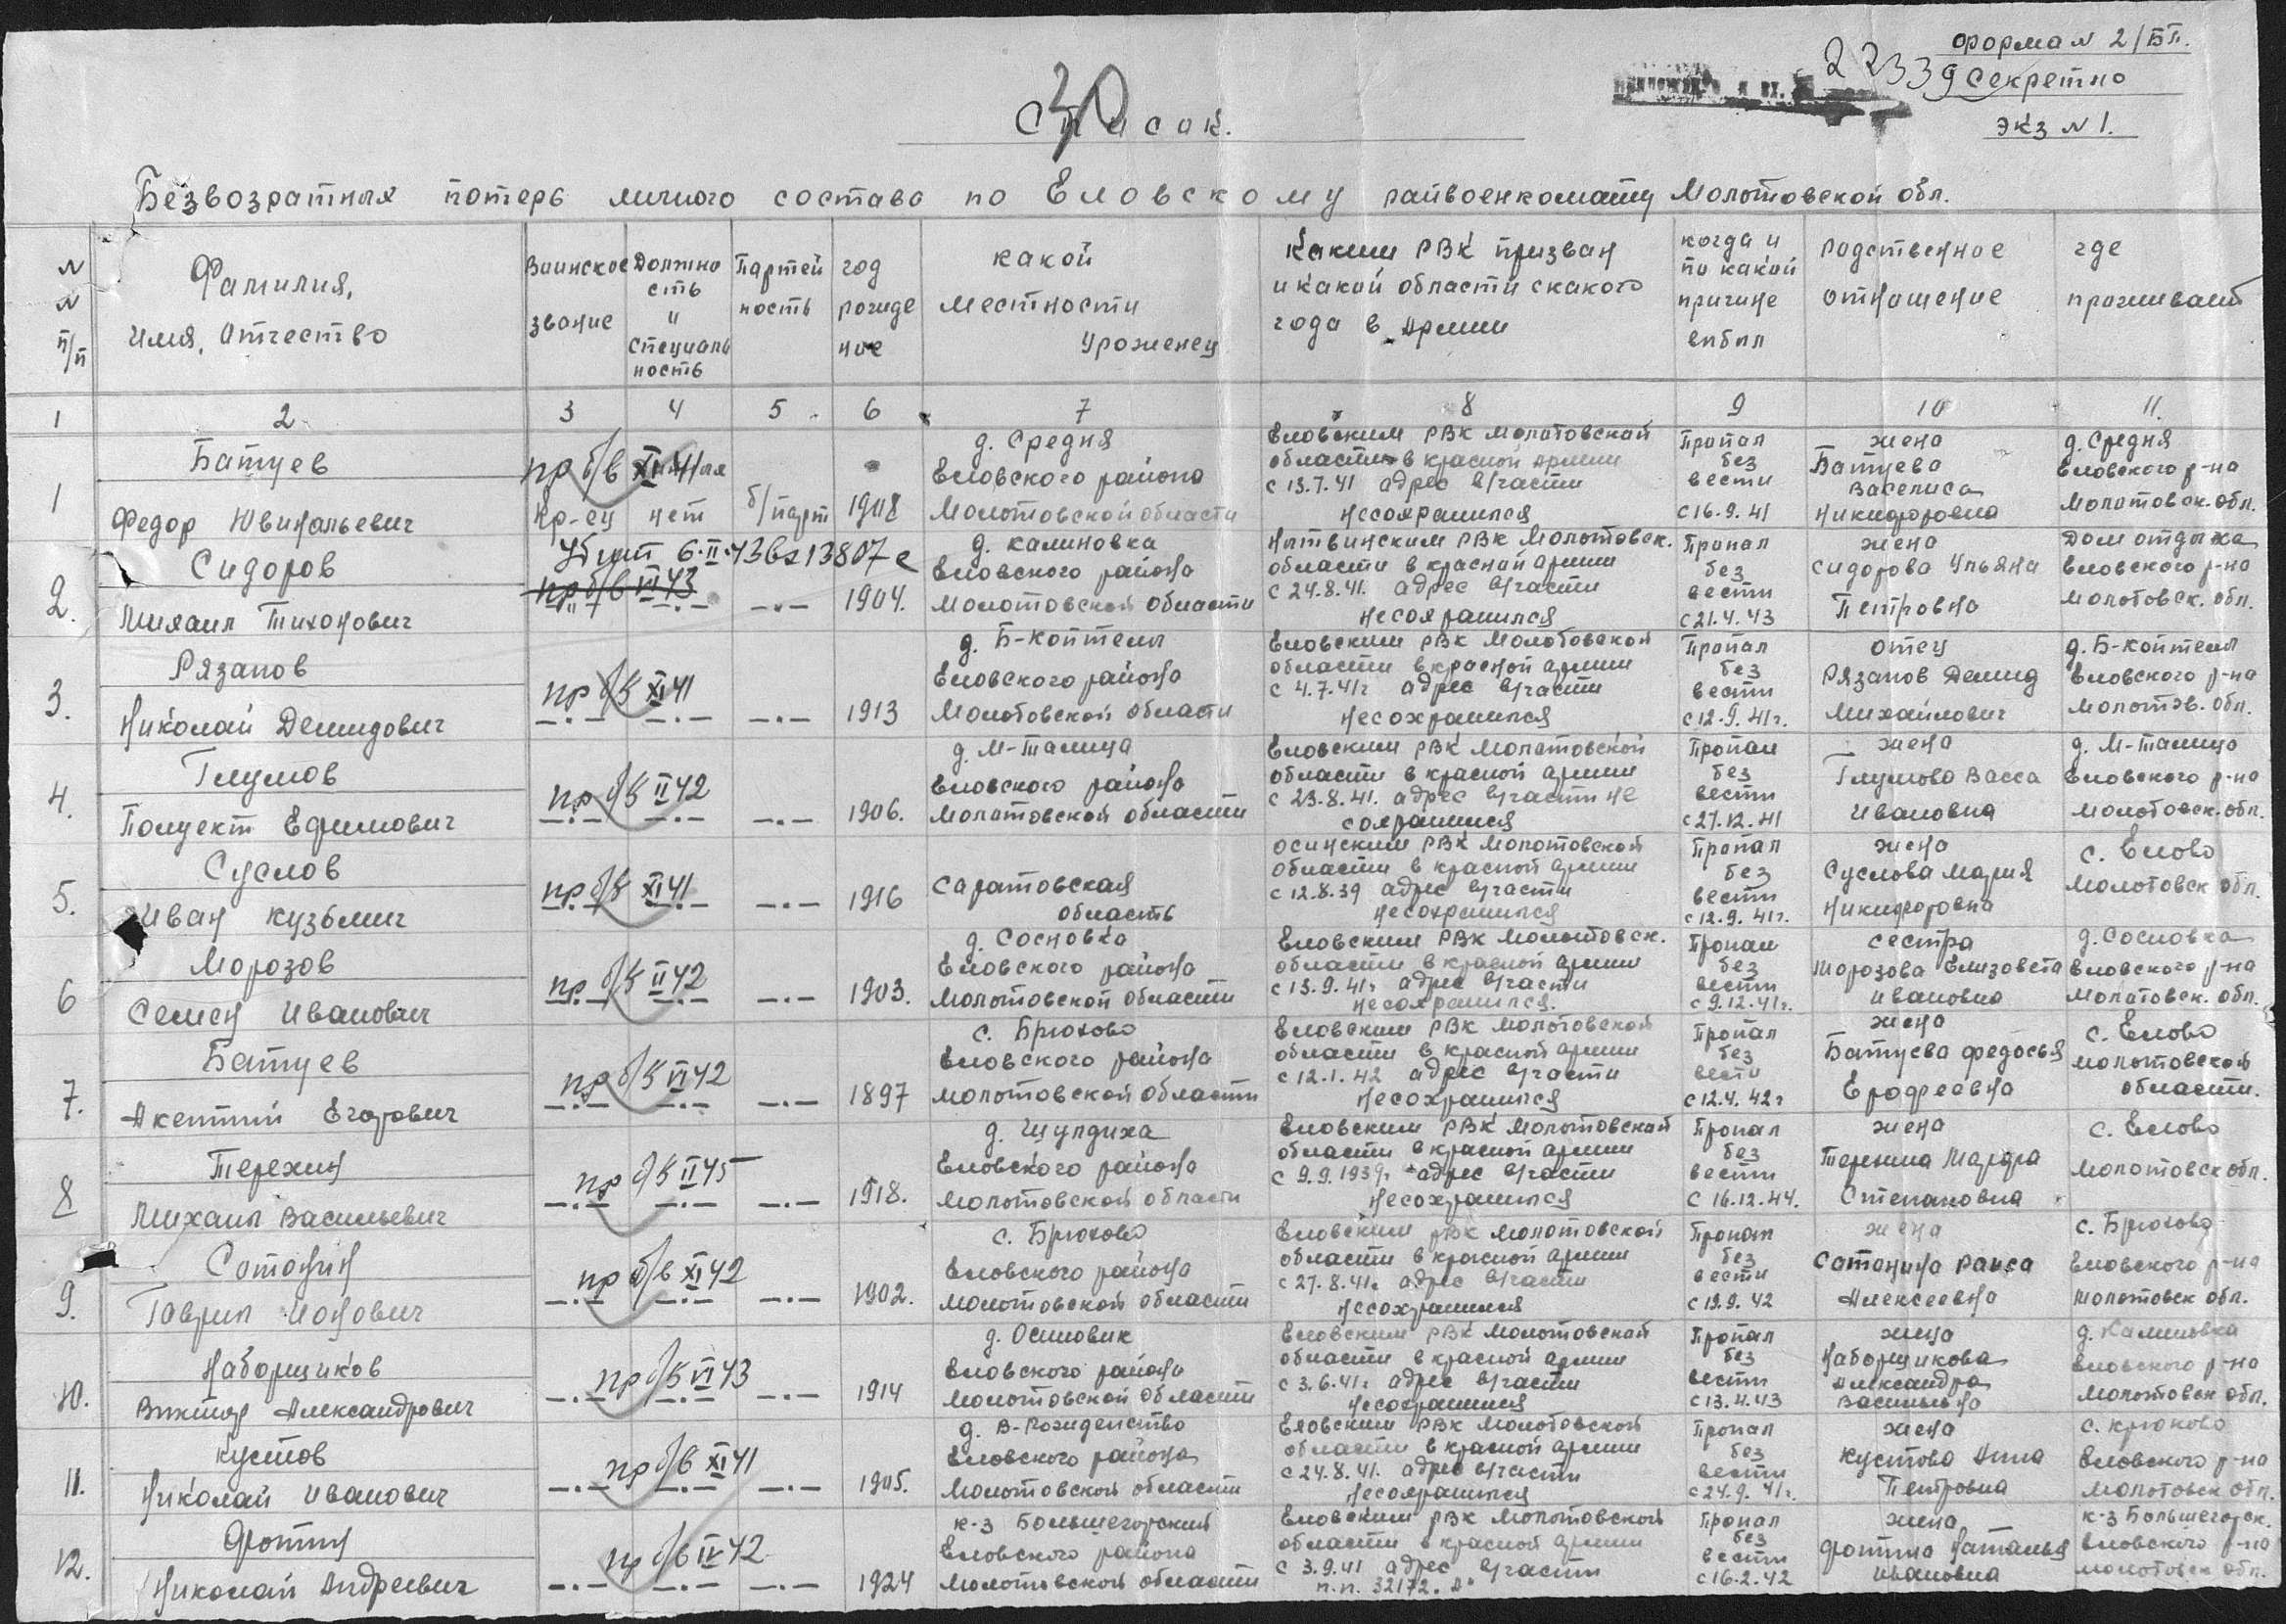 Форма N 2/БП.
22339 Секретно
экз N 1.
30
Список.
Безвозратных потерь личного состава по Еловскому райвоенкомату Молотовской обл.
N N п/п
Фамилия, Имя, Отчество
Воинское звание
Должность и специальность
Партейность
год рождение
какой местности уроженец
Каким РВК призван и какой области с какого года в Армии
когда и по какой причине выбыл
родственное отношение
где проживает
1 2 3 4 5 6 7 8 9 10 11.
1
Батуев
Федор Ювинальевич
пр б/в XI 41
Кр-ец нет б/парт 1908
д. Средня
Еловского района
Молотовской области
Еловским РВК Молотовской
области в красной армии
с 13.7.41 адрес в/части
несохранился
Пропал
без
вести
с 16.9.41
жена
Батуева
Васелиса
Никифоровна
д. Средня
Еловского р-на
Молотовск. обл.
2.
Сидоров
Михаил Тихонович
Убит 6.II.43 вх 13807с
пр б/в VI 43
—·— —·— 1904.
д. калиновка
Еловского района
Молотовской области
Нытвинским РВК Молотовск.
области в красной армии
с 24.8.41. адрес в/части
несохранился
Пропал
без
вести
с 21.4.43
жена
Сидорова Ульяна
Петровна
Дом отдыха
Еловского р-на
Молотовск. обл.
3.
Рязанов
Николай Демидович
пр б/в XI 41
—·— —·— —·— 1913
д. Б-Коптелы
Еловского района
Молотовской области
Еловским РВК Молотовской
области в красной армии
с 4.7.41г адрес в/части
несохранился
Пропал
без
вести
с 12.9.41г.
отец
Рязанов Демид
Михайлович
д. Б-коптелы
Еловского р-на
Молотов. обл.
4.
Глумов
Полуект Ефимович
пр б/в II 42
—·— —·— —·— 1906.
д. М-Талица
Еловского района
Молотовской области
Еловским РВК Молотовской
области в красной армии
с 23.8.41. адрес в/части не
сохранился
Пропал
без
вести
с 27.12.41
жена
Глумова Васса
Ивановна
д. М-Талица
Еловского р-на
Молотовск. обл.
5.
Суслов
Иван Кузьмич
пр б/в XI 41
—·— —·— —·— 1916
Саратовская
область
Осинским РВК Молотовской
области в красной армии
с 12.8.39 адрес в/части
несохранился
Пропал
без
вести
с 12.9.41г.
жена
Суслова Мария
Никифоровна
с. Елово
Молотовск обл.
6
Морозов
Семен Иванович
пр б/в II 42
—·— —·— —·— 1903.
д. Сосновка
Еловского района
Молотовской области
Еловским РВК Молотовск.
области в красной армии
с 13.9.41г адрес в/части
несохранился.
Пропал
без
вести
с 9.12.41г.
сестра
Морозова Елизовета
Ивановна
д. Сосновка
Еловского р-на
Молотовск. обл.
7.
Батуев
Акентий Егорович
пр б/в VI 42
—·— —·— —·— 1897
с. Брюхово
Еловского района
Молотовской области
Еловским РВК Молотовской
области в красной армии
с 12.1.42 адрес в/части
несохранился
Пропал
без
вести
с 12.4.42г
жена
Батуева Федосья
Ерофеевна
с. Елово
Молотовской
области.
8
Терехин
Михаил Васильевич
пр б/в II 45
—·— —·— —·— 1918.
д. Шулдиха
Еловского района
Молотовской области
Еловским РВК Молотовской
области в красной армии
с 9.9.1939г адрес в/части
несохранился
Пропал
без
вести
с 16.12.44.
жена
Терехина Марфа
Степановна
с. Елово
Молотовск обл.
9.
Сотонин
Гаврил Ионович
пр б/в XI 42
—·— —·— —·— 1902.
с. Брюхово
Еловского района
Молотовской области
Еловским РВК Молотовской
области в красной армии
с 27.8.41г адрес в/части
несохранился
Пропал
без
вести
с 19.9.42
жена
Сотонина Раиса
Алексеевна
с. Брюхово
Еловского р-на
Молотовск обл.
10.
Наборщиков
Виктор Александрович
пр б/в VI 43
—·— —·— —·— 1914
д. Осиновик
Еловского района
Молотовской области
Еловским РВК Молотовской
области в красной армии
с 3.6.41г адрес в/части
несохранился
Пропал
без
вести
с 13.4.43
жена
Наборщикова
Александра
Васильевна
д. Калиновка
Еловского р-на
Молотовск обл.
11.
Кустов
Николай Иванович
пр б/в XI 41
—·— —·— —·— 1905.
д. В-Рожденство
Еловского района
Молотовской области
Еловским РВК Молотовской
области в красной армии
с 24.8.41. адрес в/части
несохранился
Пропал
без
вести
с 24.9.41г.
жена
Кустова Анна
Петровна
с. Крюково
Еловского р-на
Молотовск обл.
12.
Фотин
Николай Андреевич
пр б/в IV 42
—·— —·— —·— 1924
к-з Большегорский
Еловского района
Молотовской области
Еловским РВК Молотовской
области в красной армии
с 3.9.41 адрес в/части
п.п. 32172. "А"
Пропал
без
вести
с 16.2.42
жена
Фотина Наталья
Ивановна
к-з Большегорск.
Еловского р-на
Молотовск обл.